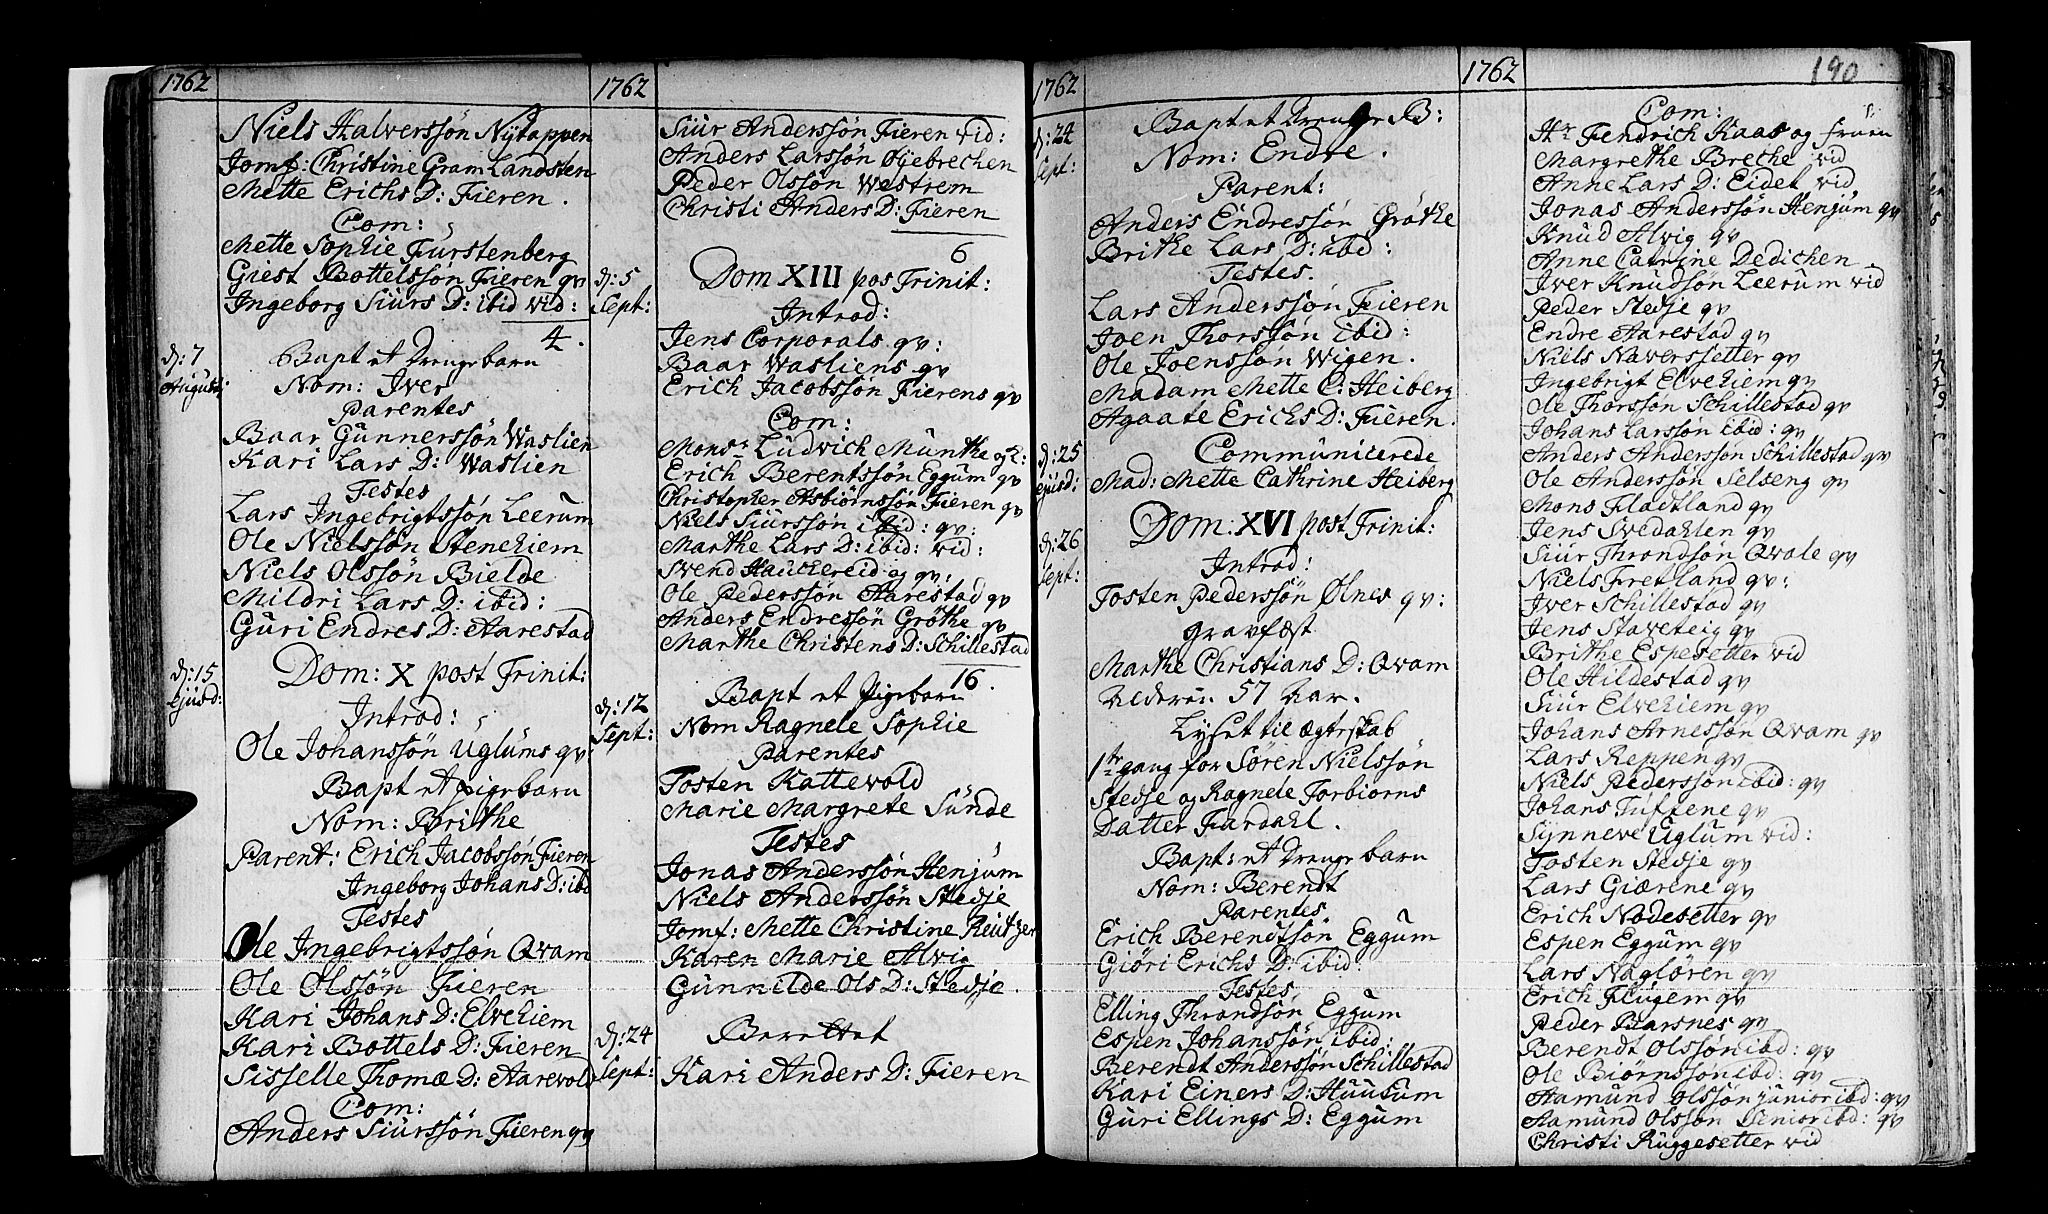 1762
Niels Halverssøn Nÿtappen
Jomf: Christine Gram Landsten
Mette Erichs D: Fieren.
Com:
Mette Sophie Fürstenberg
Giest Bottelssøn Fieren qv
Ingeborg Siurs D: ibid vid:
4.
d: 7 Augusti
Bapt et Drengebarn
Nom: Iver
Parentes
Baar Günnerssøn Waslien
Kari Lars D: Waslien
Testes
Lars Ingebrigtssøn Leerum
Ole Nielssøn Stenehiem
Niels Olssøn Bielde
Mildri Lars D: ibid:
Güri Endres D: Aarestad
d: 15 Ejusd:
Dom: X post Trinit:
Introd:
Ole Johanssøn Üglums qv
Bapt et pigebarn
Nom: Brithe
Parent: Erich Jacobssøn Fieren
Ingeborg Johans D: ibd
Testes
Ole Ingebrigtssøn Qvam
Ole Olssøn Fieren
Kari Johans D: Elvehiem
Kari Bottels D: Fieren
Sisselle Thomæ D: Aarevold
Com:
Anders Siurssøn Fieren qv
1762
Siur Anderssøn Fieren vid:
Anders Larssøn Øyebrechen
Peder Olssøn Westrem
Christi Anders D: Fieren
6
d: 5 Sept:
Dom XIII pos Trinit:
Introd:
Jens Corporals qv:
Baar Wasliens qv
Erich Jacobssøn Fierens qv
Com:
Monsr Lüdvich Münthe og K:
Erich Berentssøn Eggum qv
Christopher Asbiørnssøn Fieren qv
Niels Siurssøn ibid: qv:
Marthe Lars D: ibid: vid:
Svend Hauchereid qv:
Ole Pederssøn Aarestad qv
Anders Endressøn Grøthe qv
Marthe Christens D: Schillestad
16.
d: 12 Sept:
Bapt et Pigebarn
Nom Ragnele Sophie
Parentes
Tosten Kattevold
Marie Margrete Sünde
Testes
Jonas Anderssøn Henjum
Niels Anderssøn Stedje
Jomf: Mette Christine Reutzer
Karen Marie Alvig
Günnilde Ols D: Stedje.
d: 24 Sept:
Berettet
Kari Anders D: Fieren
1762
d: 24 Sept:
Bapt et Drenge B:
Nom: Endre.
Parent:
Anders Endressøn Grøthe
Brithe Lars D: ibid:
Testes.
Lars Anderssøn Fieren
Joen Thorssøn ibid:
Ole Joenssøn Wigen.
Madam Mette C: Heiberg
Agaate Erichs D: Fieren.
d: 25 ejusd:
Communicerede
Mad: Mette Cathrine Heiberg
d: 26 Sept:
Dom: XVI post Trinit:
Introd:
Tosten Pederssøn Ølnes qv:
gravfæst
Marthe Christians D: Qvam
Alderen 57 Aar.
Lÿset til Ægteskab
1te gang for Søren Nielssøn
Stedje og Ragnele Torbiørns
Datter Fardahl.
Bapt: et Drenge barn
Nom: Berendt
Parentes.
Erich Berendtsøn Eggum
Giøri Erichs D: ibid:
Testes
Elling Throndsøn Eggum
Espen Johanssøn ibid:
Berendt Anderssøn Schillestad
Kari Einers D: Huusum
Guri Ellings D: Eggum
1762
190
Com:
Hr Fendrich Kaas og Fruen
Margrethe Breche vid
Anne Lars D: Eidet vid
Jonas Anderssøn Henjum qv
Knud Alvig qv
Anne Catrine Dedichen
Iver Knudsøn Leerum vid
Peder Stedje qv
Endre Aarestad qv
Niels Naverssetter qv
Ingebrigt Elvehiem qv
Ole Thorssøn Schillestad qv
Johans Larssøn ibid: qv
Anders Anderssøn Schillestad qv
Ole Anderssøn Selseng qv
Mons Fladtland qv
Jens Svedahlen qv
Siur Throndsøn Qvale qv
Niels Fretland qv:
Iver Schillestad qv
Jens Staveteig qv
Brithe Espesetter vid
Ole Hildestad qv
Siur Elvehiem qv
Johans Arnessøn Qvam qv
Lars Reppen qv
Niels Pederssøn ibid: qv
Johans Tufftene qv
Synneve Uglum vid:
Tosten Stedje qv
Lars Giærene qv
Erich Nodesetter qv
Espen Eggum qv
Lars Nagløren qv
Erich Flugem qv
Peder Barsnes qv
Berendt Olssøn ibd: qv
Ole Biørnssøn ibd: qv
Aamund Olssøn junior ibd: qv
Aamund Olssøn Senior ibd: qv
Christi Ruggesetter vid